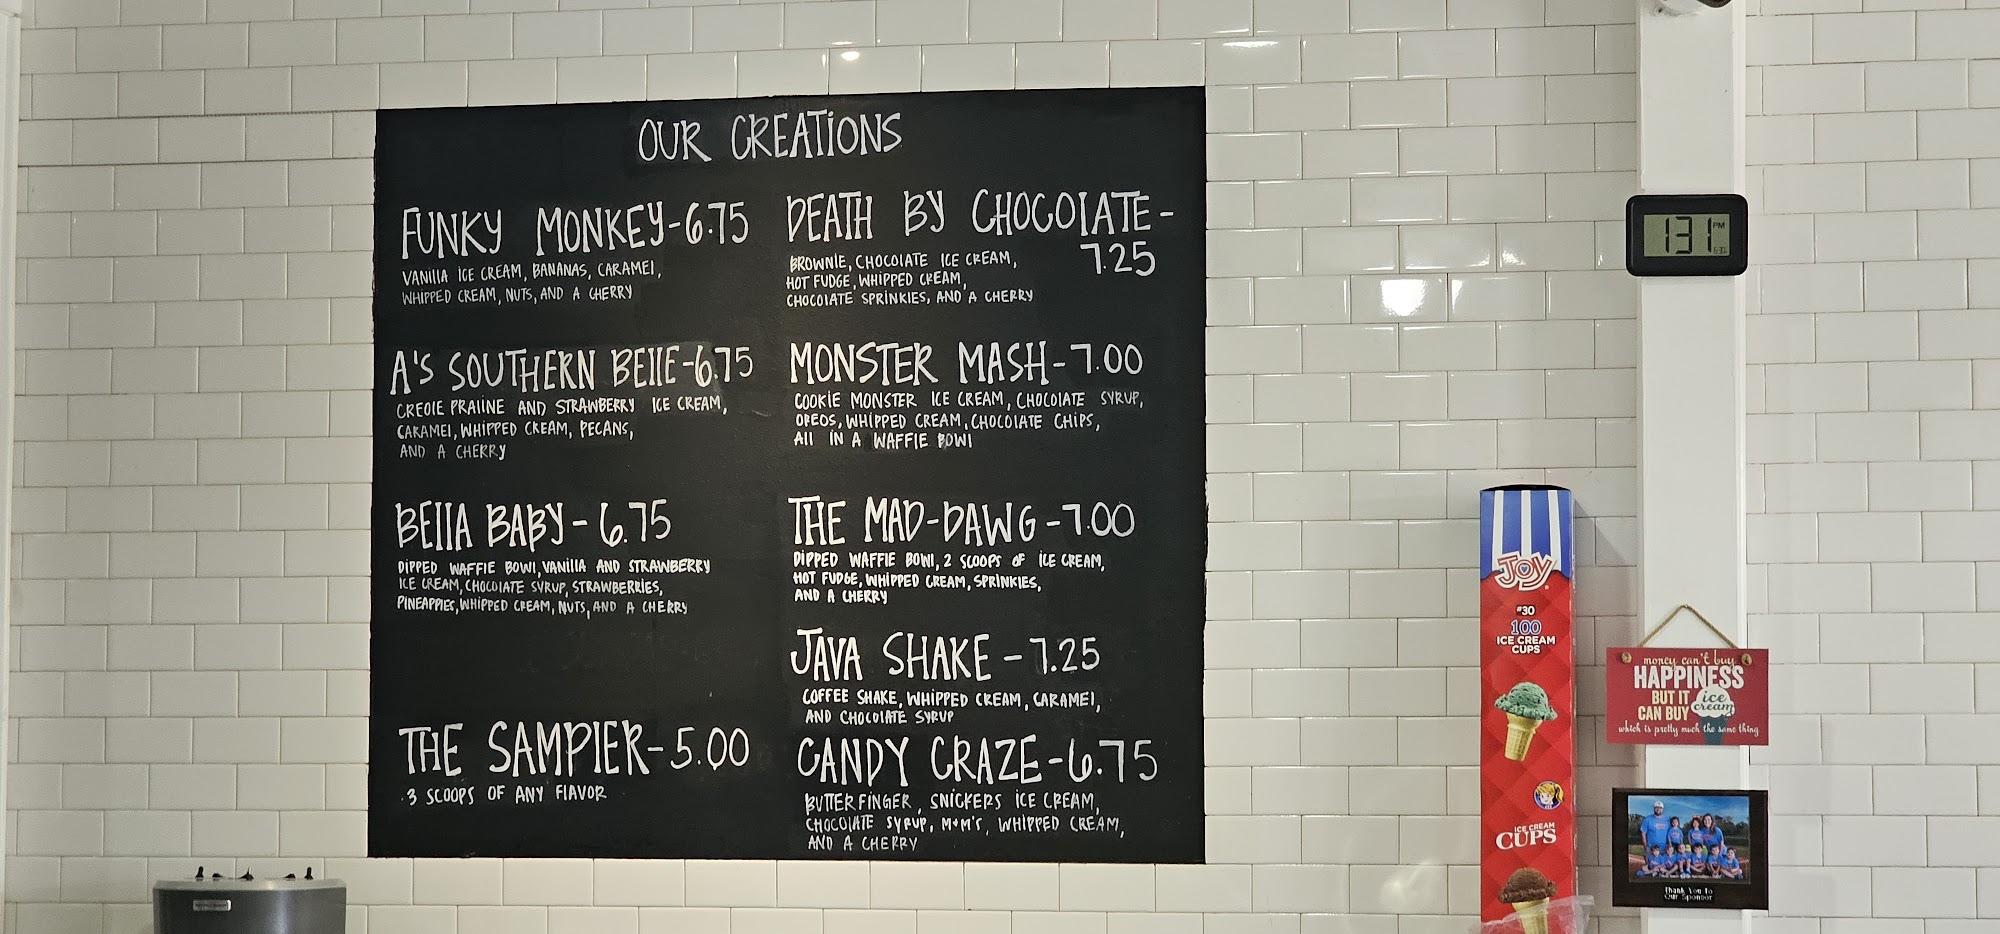 OUR CREATIONS
FUNKY MONKEY-6.75
VANILLA ICE CREAM, BANANAS, CARAMEL,
WHIPPED CREAM, NUTS, AND A CHERRY
A'S SOUTHERN BELLE-6.75
CREOLE PRALINE AND STRAWBERRY ICE CREAM,
CARAMEL, WHIPPED CREAM, PECANS,
AND A CHERRY
BELLA BABY-6.75
DIPPED WAFFLE BOWL, VANILLA AND STRAWBERRY
ICE CREAM, CHOCOLATE SYRUP, STRAWBERRIES,
PINEAPPLES, WHIPPED CREAM, NUTS, AND A CHERRY
THE SAMPLER-5.00
3 SCOOPS OF ANY FLAVOR
DEATH BY CHOCOLATE-
7.25
BROWNIE, CHOCOLATE ICE CREAM,
HOT FUDGE, WHIPPED CREAM,
CHOCOLATE SPRINKLES, AND A CHERRY
MONSTER MASH-7.00
COOKIE MONSTER ICE CREAM, CHOCOLATE SYRUP,
OREOS, WHIPPED CREAM, CHOCOLATE CHIPS,
ALL IN A WAFFLE BOWL
THE MAD-DAWG-7.00
DIPPED WAFFLE BOWL, 2 SCOOPS OF ICE CREAM,
HOT FUDGE, WHIPPED CREAM, SPRINKLES,
AND A CHERRY
JAVA SHAKE-7.25
COFFEE SHAKE, WHIPPED CREAM, CARAMEL,
AND CHOCOLATE SYRUP
CANDY CRAZE-6.75
BUTTERFINGER, SNICKERS ICE CREAM,
CHOCOLATE SYRUP, M+M'S, WHIPPED CREAM,
AND A CHERRY
1:31 PM
JOY
#30
100
ICE CREAM
CUPS
ICE CREAM
CUPS
money can't buy
HAPPINESS
BUT IT
CAN BUY ice cream
which is pretty much the same thing
Thank You To
Our Sponsor